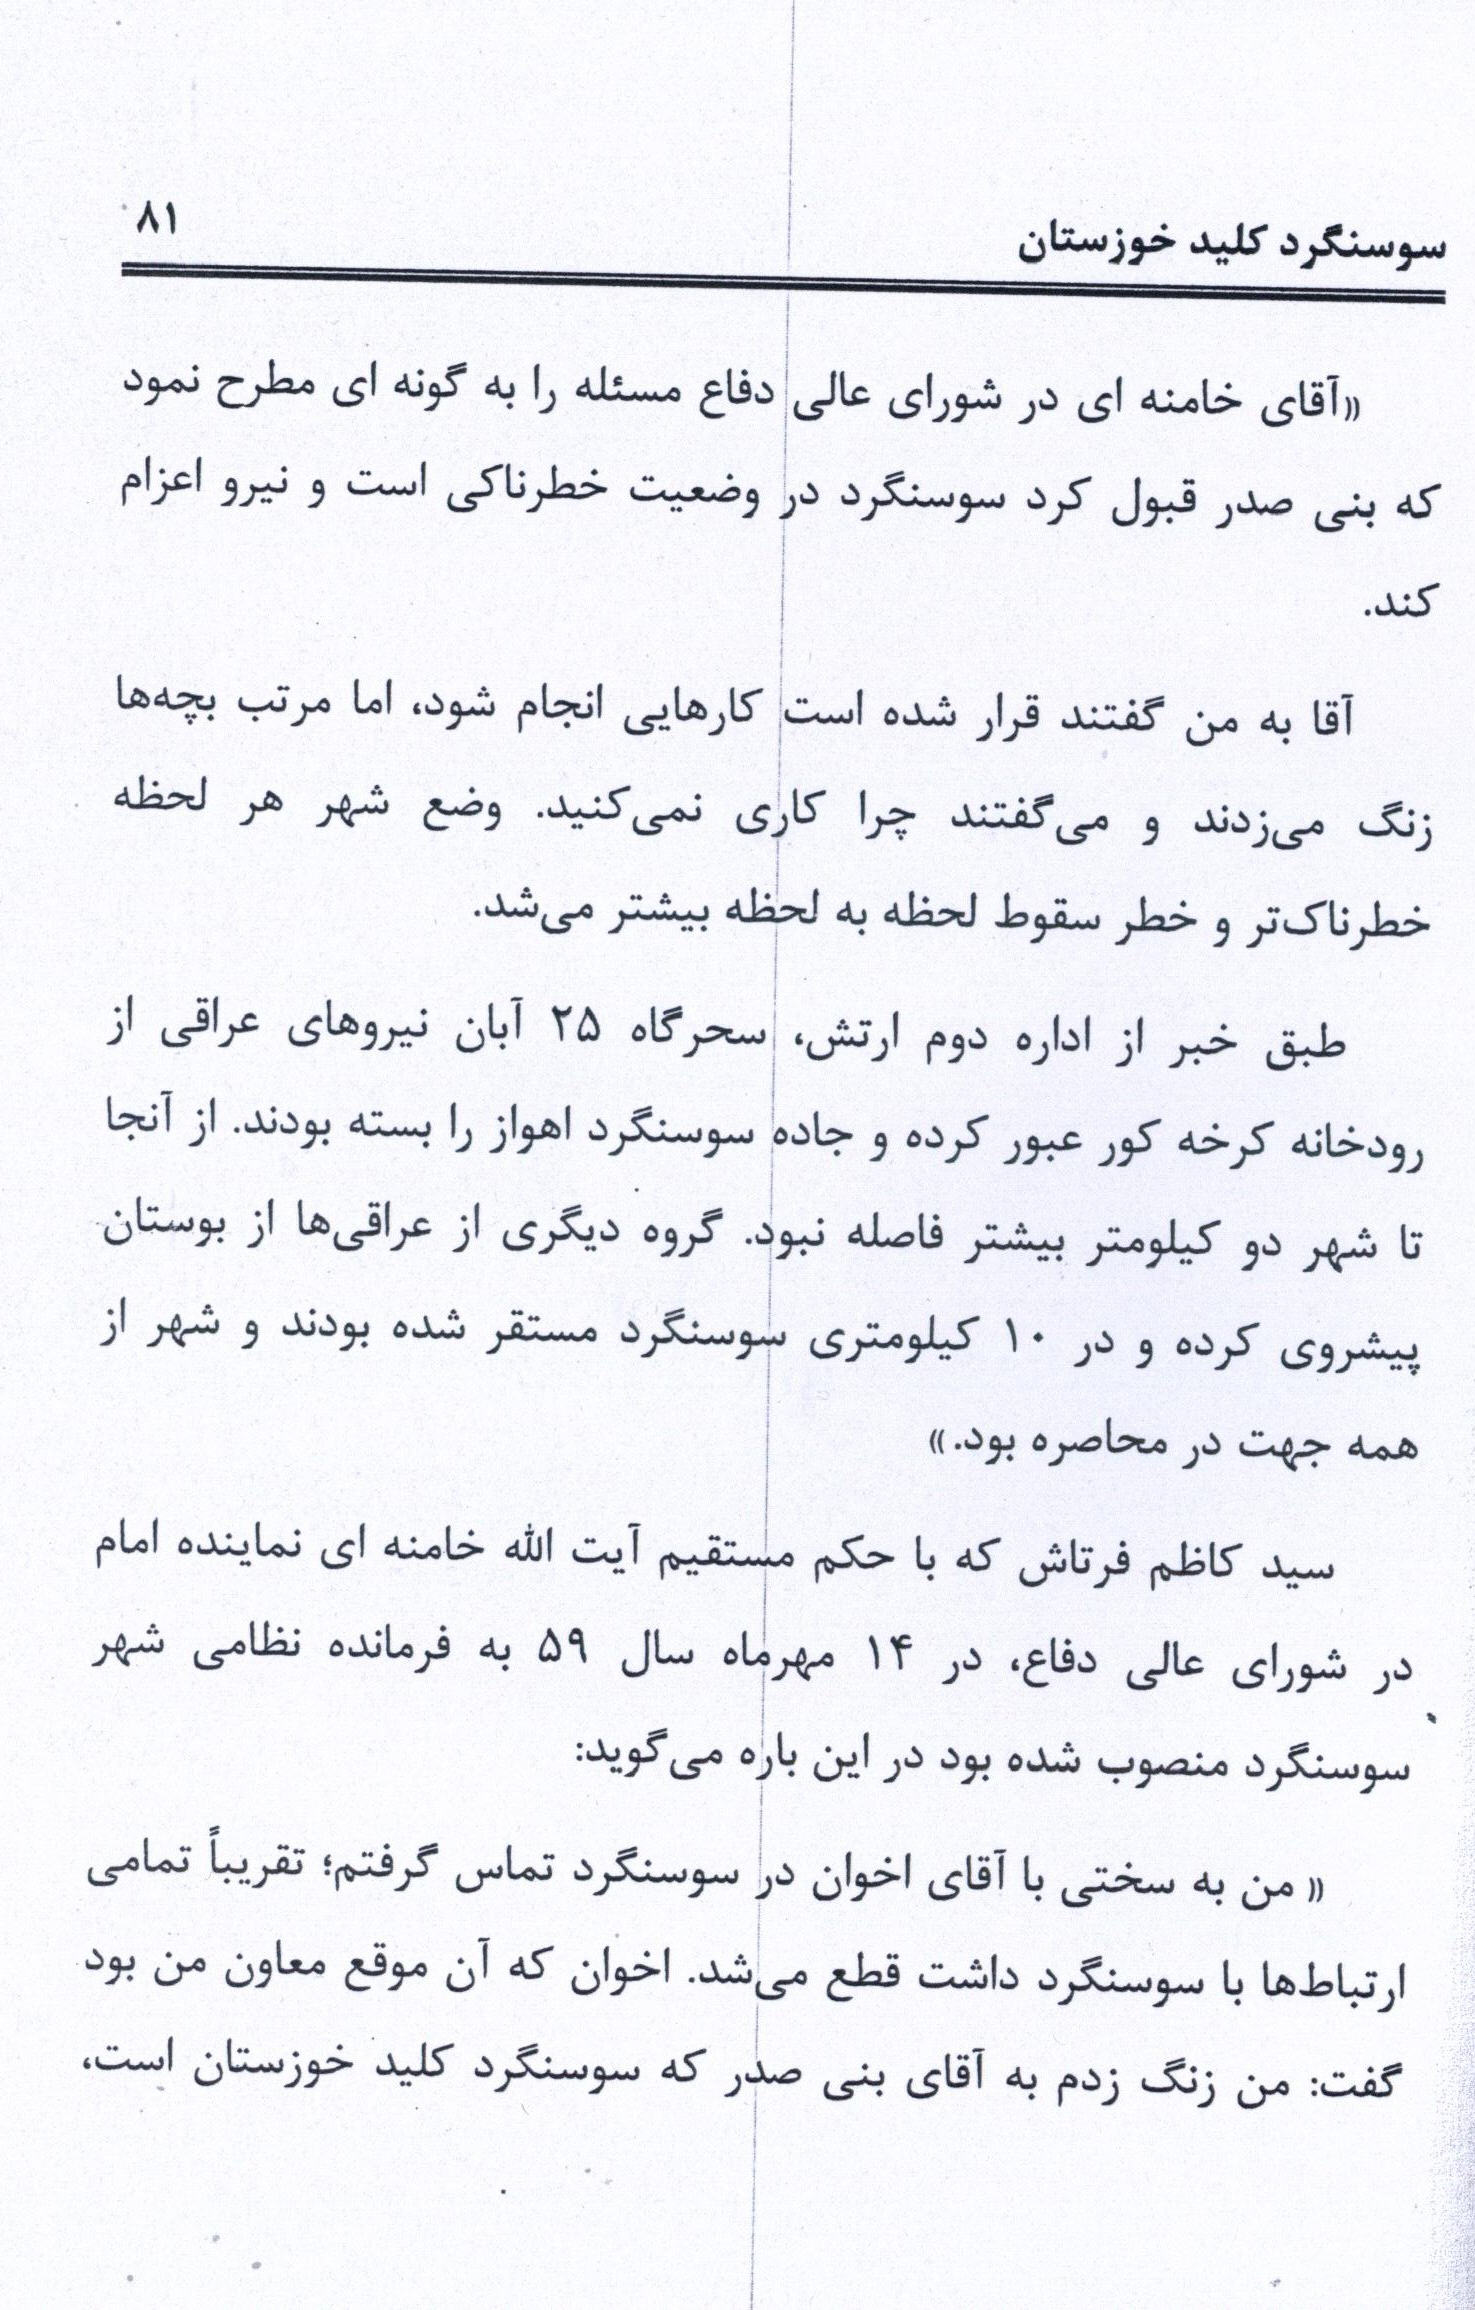 سوسنگرد کلید خوزستان ۸۱
«آقای خامنه ای در شورای عالی دفاع مسئله را به گونه ای مطرح نمود
که بنی صدر قبول کرد سوسنگرد در وضعیت خطرناکی است و نیرو اعزام
کند.
آقا به من گفتند قرار شده است کارهایی انجام شود، اما مرتب بچه‌ها
زنگ می‌زدند و می‌گفتند چرا کاری نمی‌کنید. وضع شهر هر لحظه
خطرناک‌تر و خطر سقوط لحظه به لحظه بیشتر می‌شد.
طبق خبر از اداره دوم ارتش، سحرگاه ۲۵ آبان نیروهای عراقی از
رودخانه کرخه کور عبور کرده و جاده سوسنگرد اهواز را بسته بودند. از آنجا
تا شهر دو کیلومتر بیشتر فاصله نبود. گروه دیگری از عراقی‌ها از بوستان
پیشروی کرده و در ۱۰ کیلومتری سوسنگرد مستقر شده بودند و شهر از
همه جهت در محاصره بود.»
سید کاظم فرتاش که با حکم مستقیم آیت الله خامنه ای نماینده امام
در شورای عالی دفاع، در ۱۴ مهرماه سال ۵۹ به فرمانده نظامی شهر
سوسنگرد منصوب شده بود در این باره می‌گوید:
« من به سختی با آقای اخوان در سوسنگرد تماس گرفتم؛ تقریباً تمامی
ارتباط‌ها با سوسنگرد داشت قطع می‌شد. اخوان که آن موقع معاون من بود
گفت: من زنگ زدم به آقای بنی صدر که سوسنگرد کلید خوزستان است،